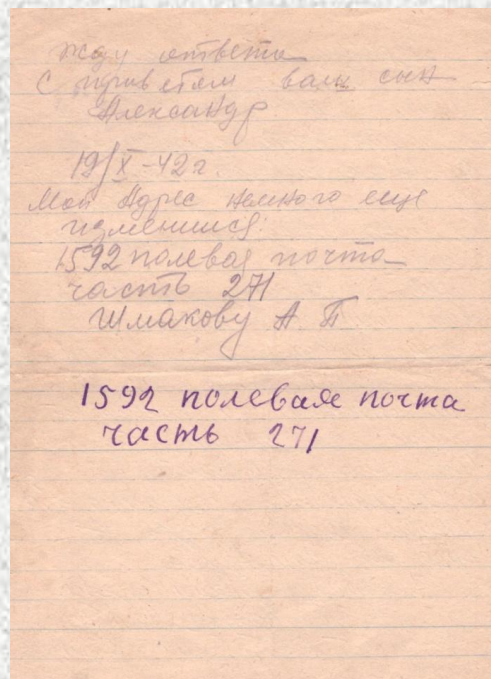 Жду ответа
С приветом ваш сын
Александр
19/X-42г.
Мой Адрес немного еще
изменился:
1592 полевая почта
часть 271
Шмакову А П
1592 полевая почта
часть 271